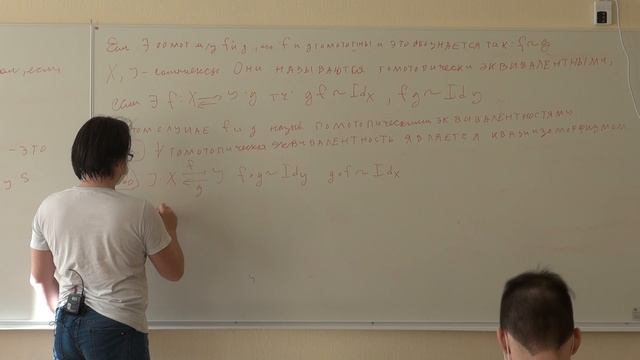 Если ∃ гомот м/у f и g, то f и g гомотопны и это обозначается так: f ~ g
X, Y - комплексы. Они называются гомотопически эквивалентными,
если ∃ f: X ⇄ Y :g т.ч. gf ~ Id_X , fg ~ Id_Y
том случае f и g назыв гомотопическими эквивалентностями
∀ гомотопическа эквивалентность является квазиизоморфизмом
X ⇄ Y f∘g ~ Id_Y g∘f ~ Id_X
f
g
если,
- это
y S